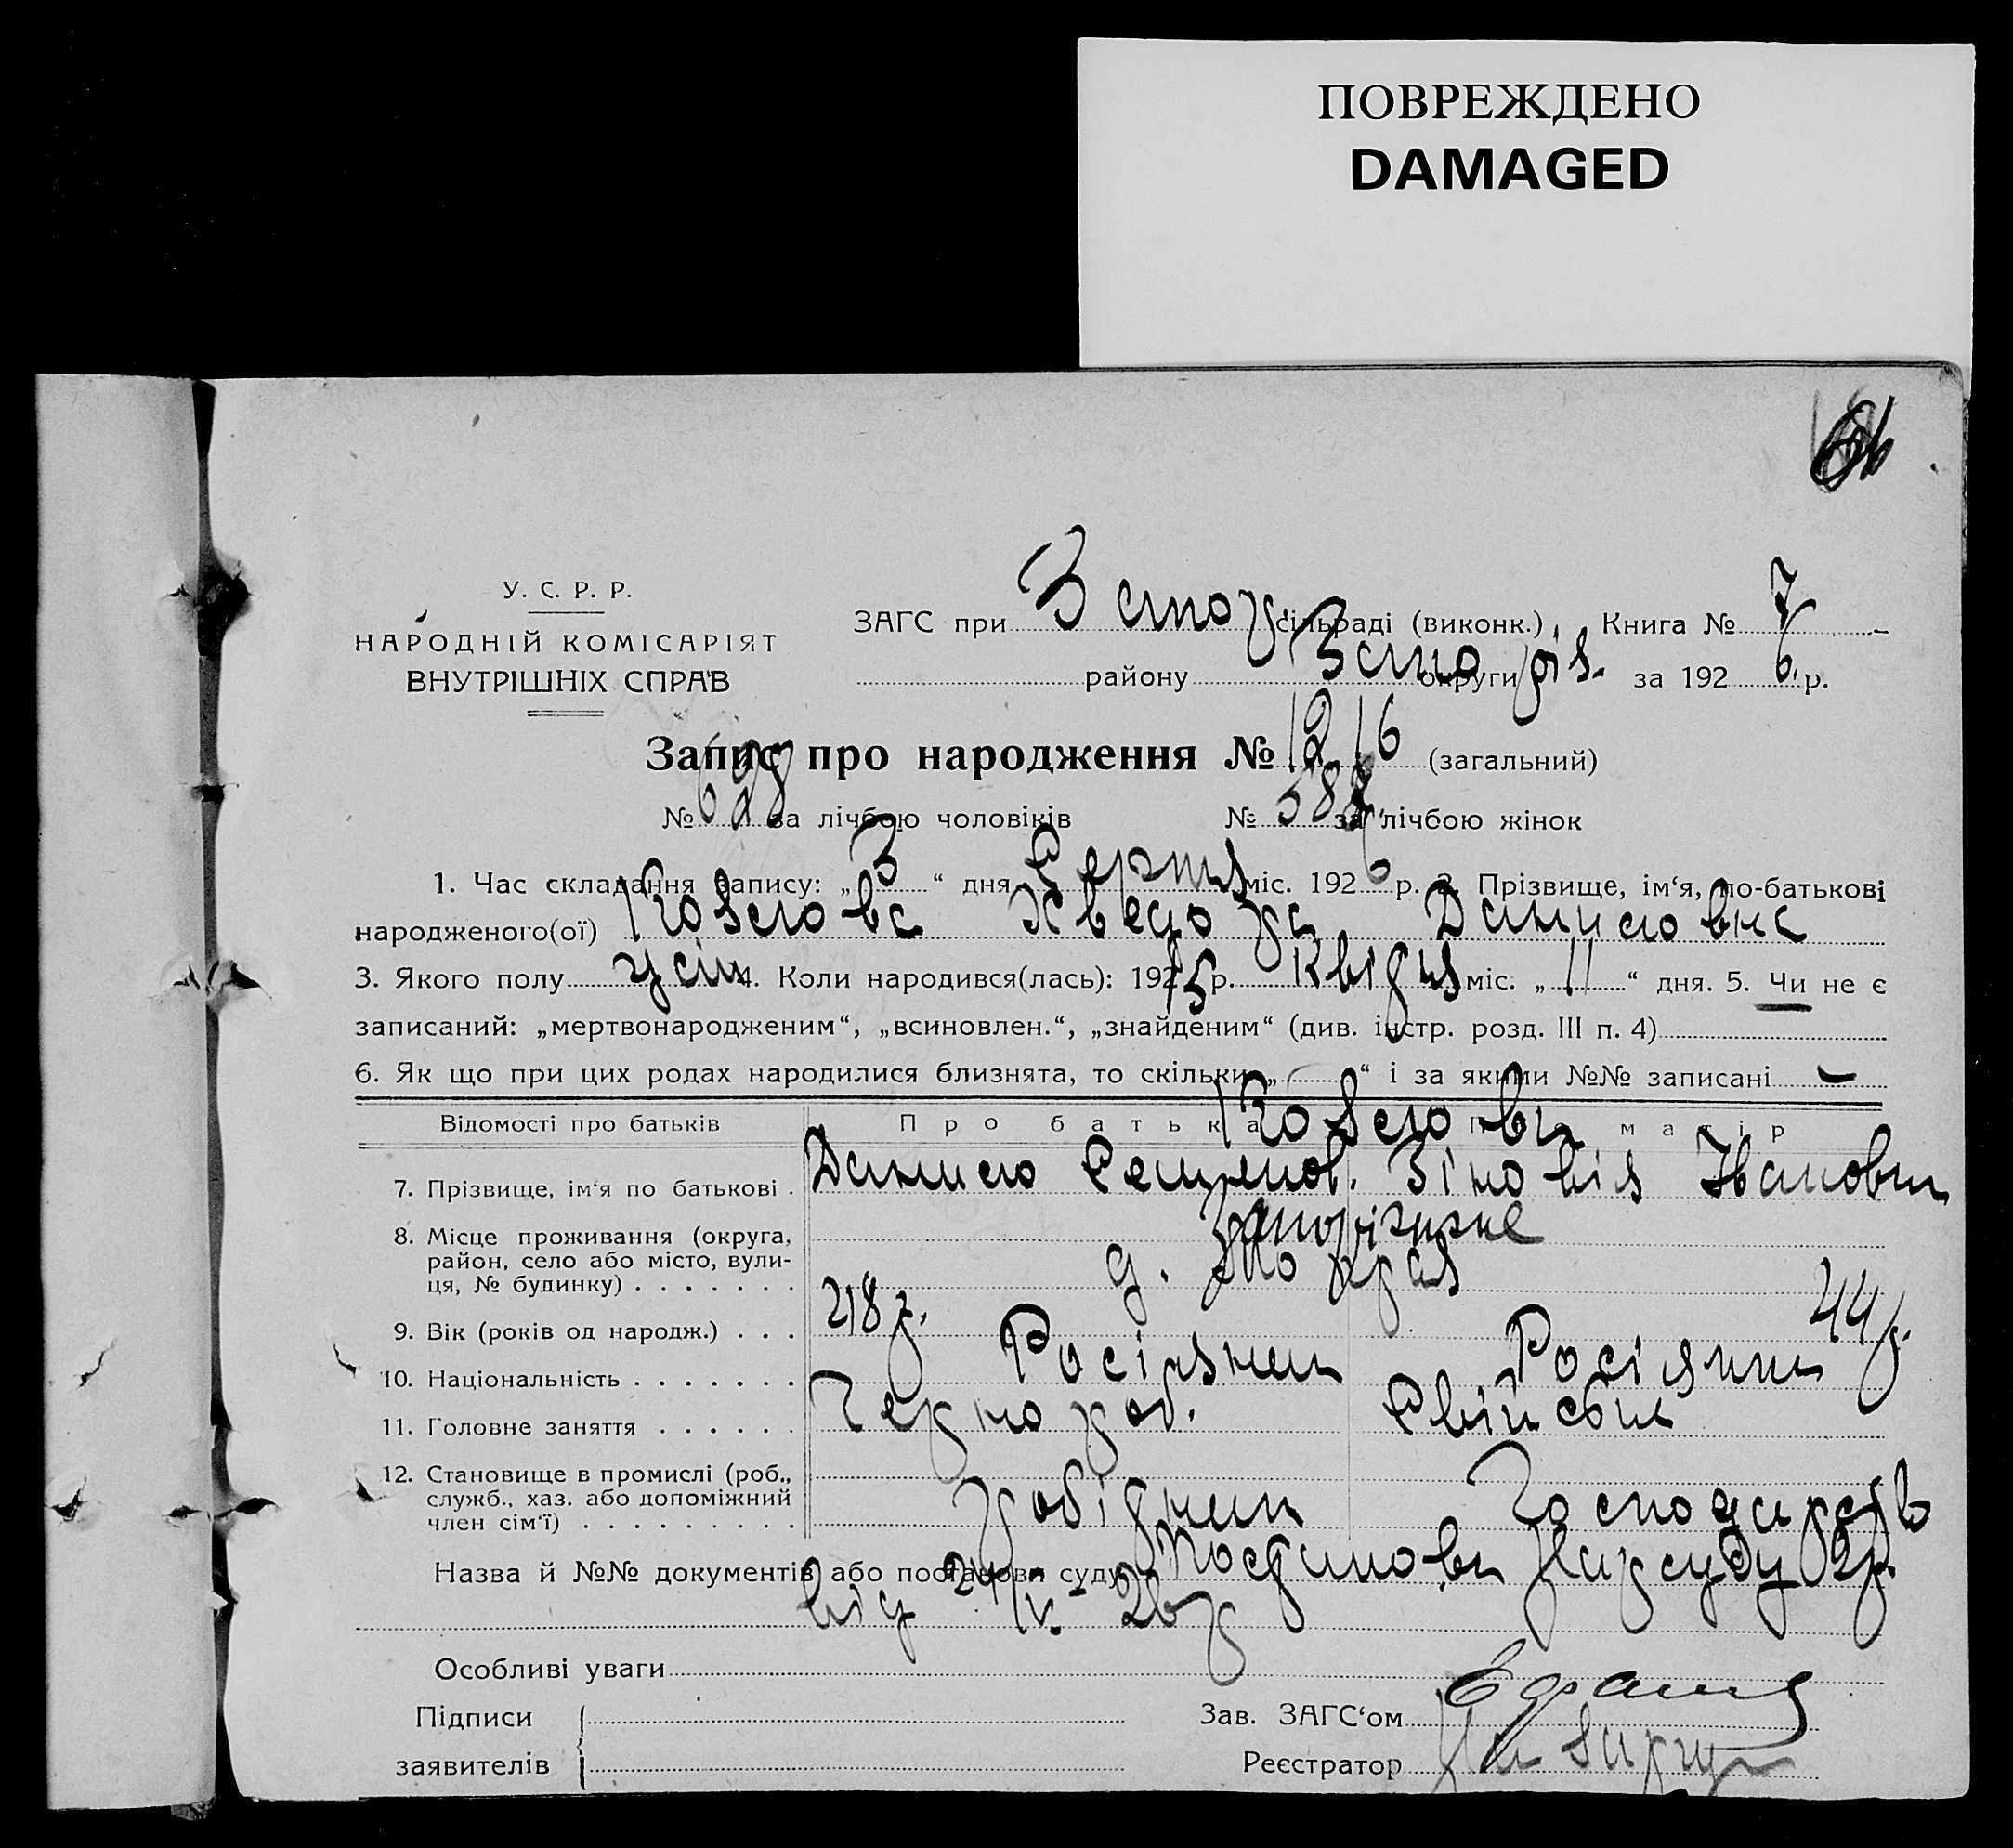 ПОВРЕЖДЕНО
DAMAGED
У. С. Р. Р.
НАРОДНІЙ КОМІСАРІЯТ
ВНУТРІШНІХ СПРАВ
ЗАГС при сільраді (виконк.) Книга № 7
району округи за 1926 р.
Запис про народження № 1216 (загальний)
№ 628 за лічбою чоловіків № 588 за лічбою жінок
1. Час складання запису: „3“ дня Серпня міс. 1926 р. 2. Прізвище, ім‘я, по-батькові
народженого(ої) Козлова Даниловна
3. Якого полу 4. Коли народився(лась): 1915 р. Квідня міс. „11“ дня. 5. Чи не є
записаний: „мертвонародженим“, „всиновлен.“, „знайденим“ (див. інстр. розд. III п. 4)
6. Як що при цих родах народилися близнята, то скільки „ “ і за якими №№ записані —
Відомості про батьків Про батька Про матір
Козлови
7. Прізвище, ім‘я по батькові . Данило Зіновія Івановна
8. Місце проживання (округа,
район, село або місто, вули-
ця, № будинку) . . . . . . . Запоріжжє
9. Вік (років од народж.) . . . 44 р.
10. Національність . . . . . . . Росіянин Росіянка
11. Головне заняття . . . . . . Чернороб.
12. Становище в промислі (роб.,
служб., хаз. або допоміжний
член сім‘ї) . . . . . . . . . робідник Господарств
Назва й №№ документів або постанови суду Постанова Нарсуду 2р.
від 26 р
Особливі уваги
Підписи Зав. ЗАГС‘ом
заявителів Реєстратор